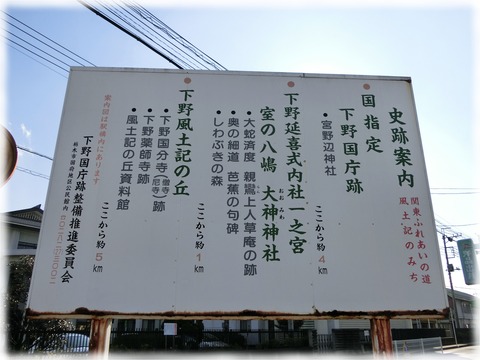 史跡案内
関東ふれあいの道
風土記のみち
国指定
下野国庁跡
・宮野辺神社
ここから約4km
下野延喜式内社一之宮
室の八嶋 大神神社
おおみわ
・大蛇済度 親鸞上人草庵の跡
・奥の細道 芭蕉の句碑
・しわぶきの森
下野風土記の丘
ここから約1km
・下野国分寺(僧寺 尼寺)跡
・下野薬師寺跡
・風土記の丘資料館
ここから約5km
案内図は駅構内にあります
下野国庁跡整備推進委員会
栃木市国府地区公民館内